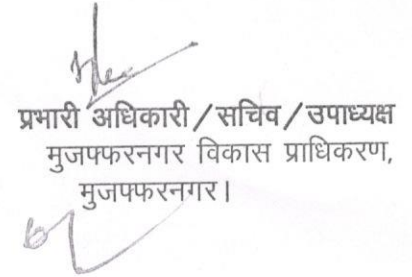 प्रभारी अधिकारी/सचिव/उपाध्यक्ष
मुजफ्फरनगर विकास प्राधिकरण,
मुजफ्फरनगर।